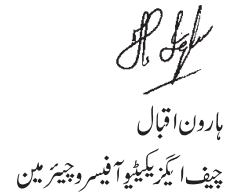 ہارون اقبال
چیف ایگزیکیٹیو آفیسر و چیئر مین